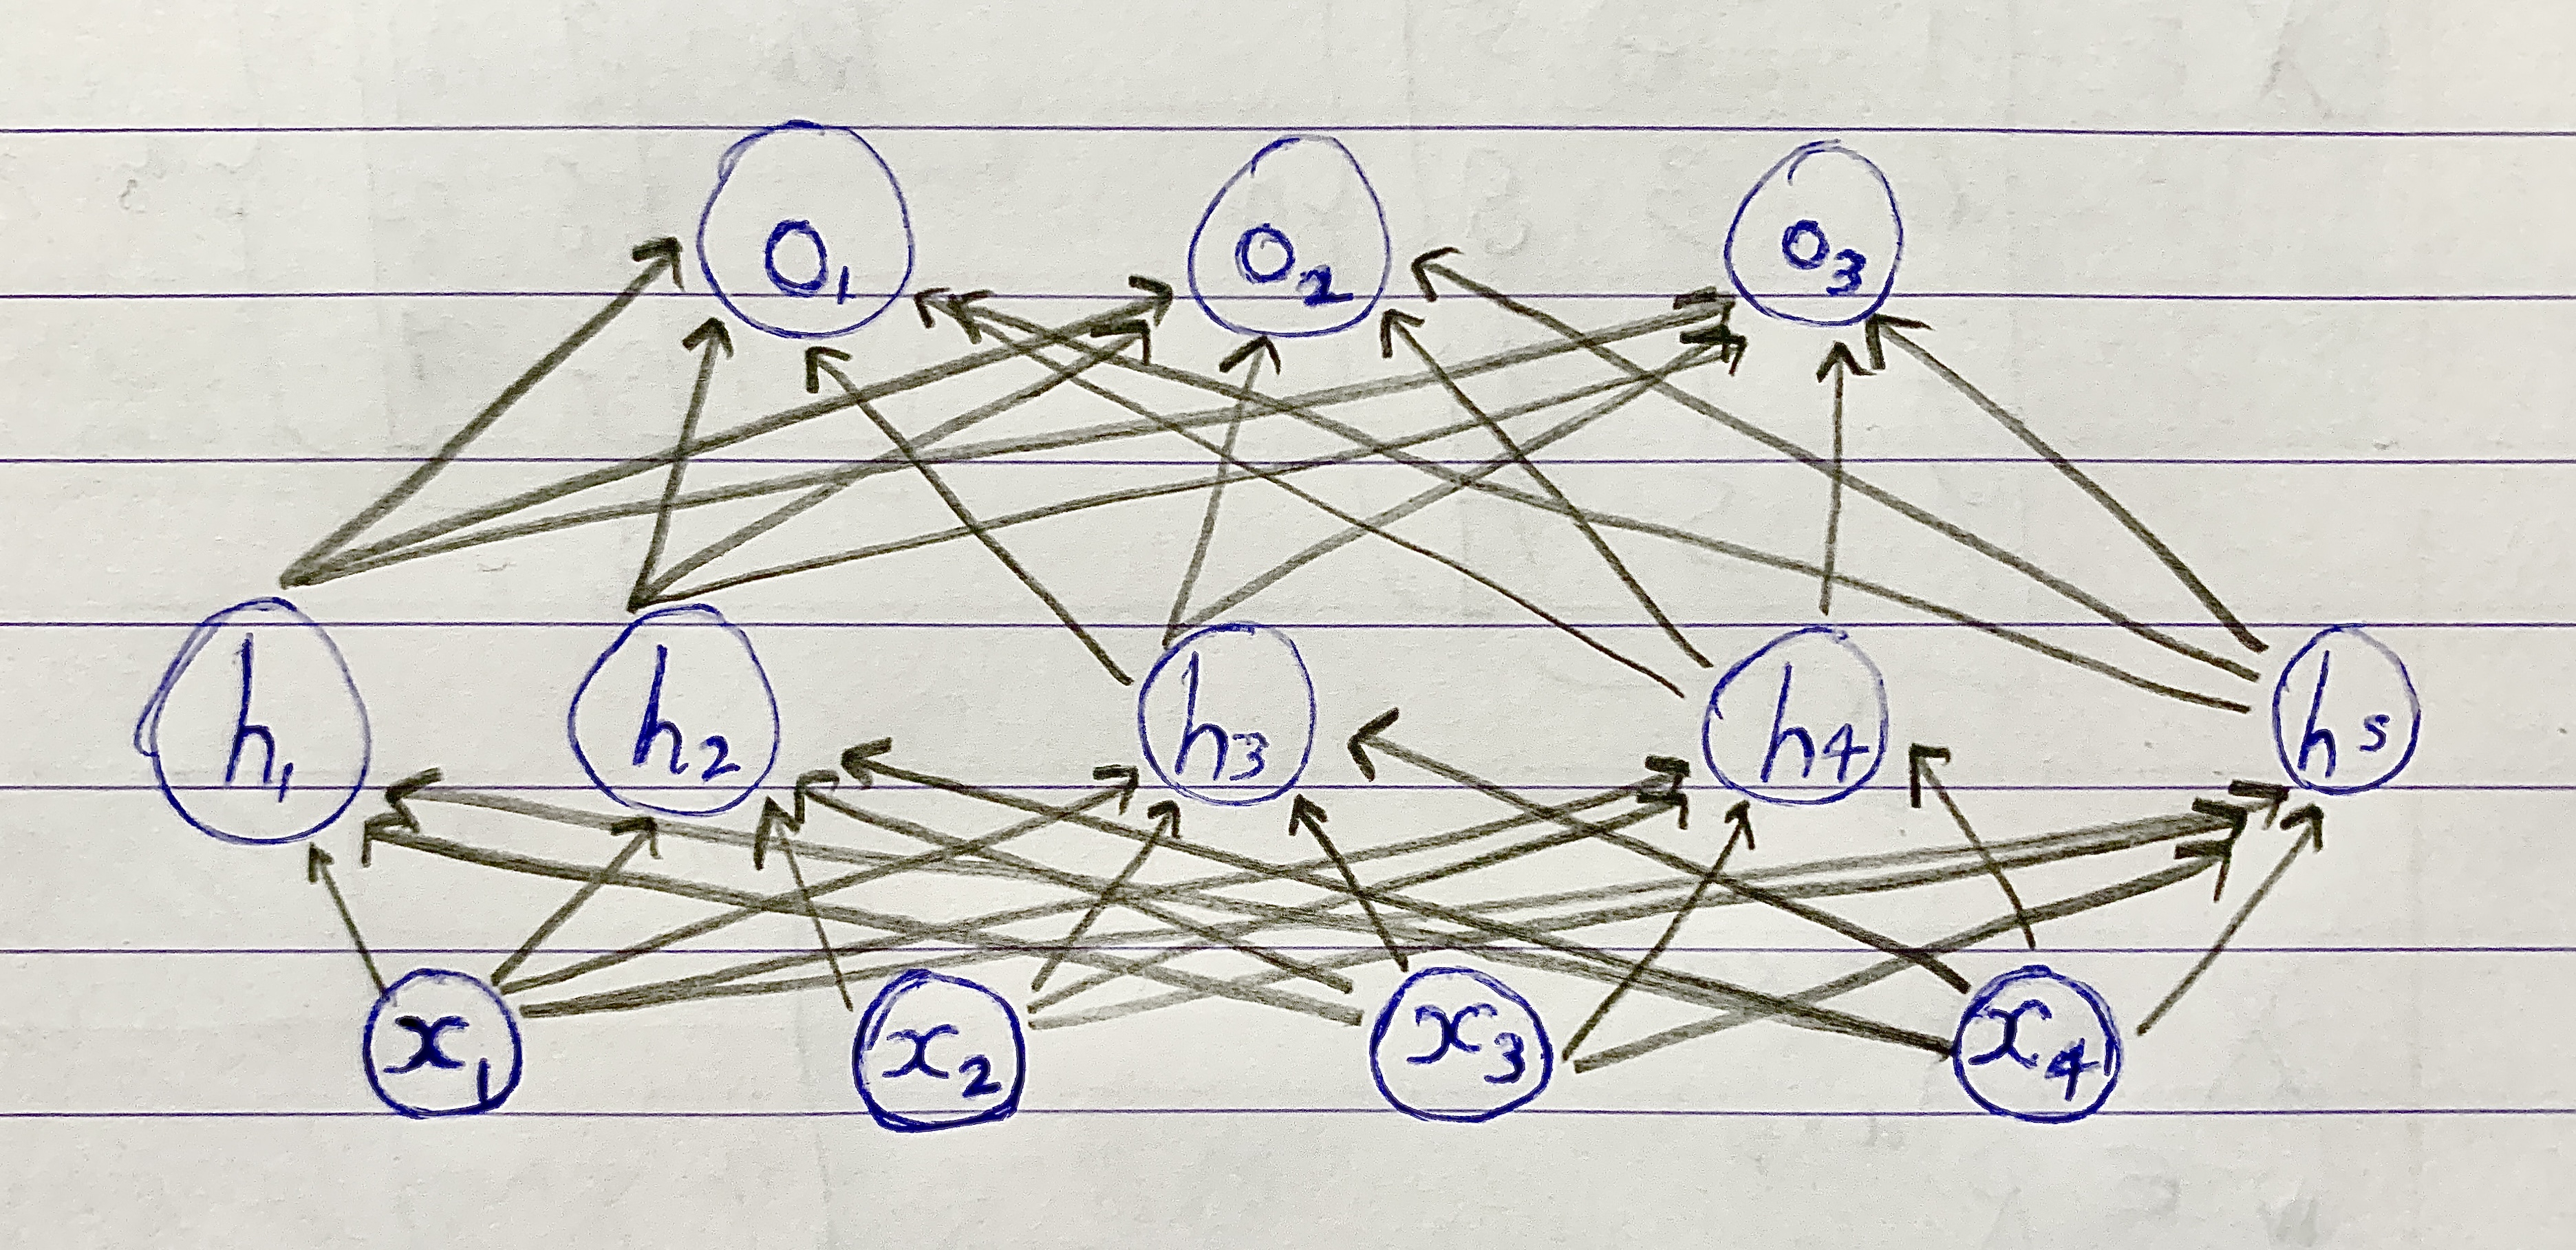 o1 o2 o3
h1 h2 h3 h4 h5
x1 x2 x3 x4